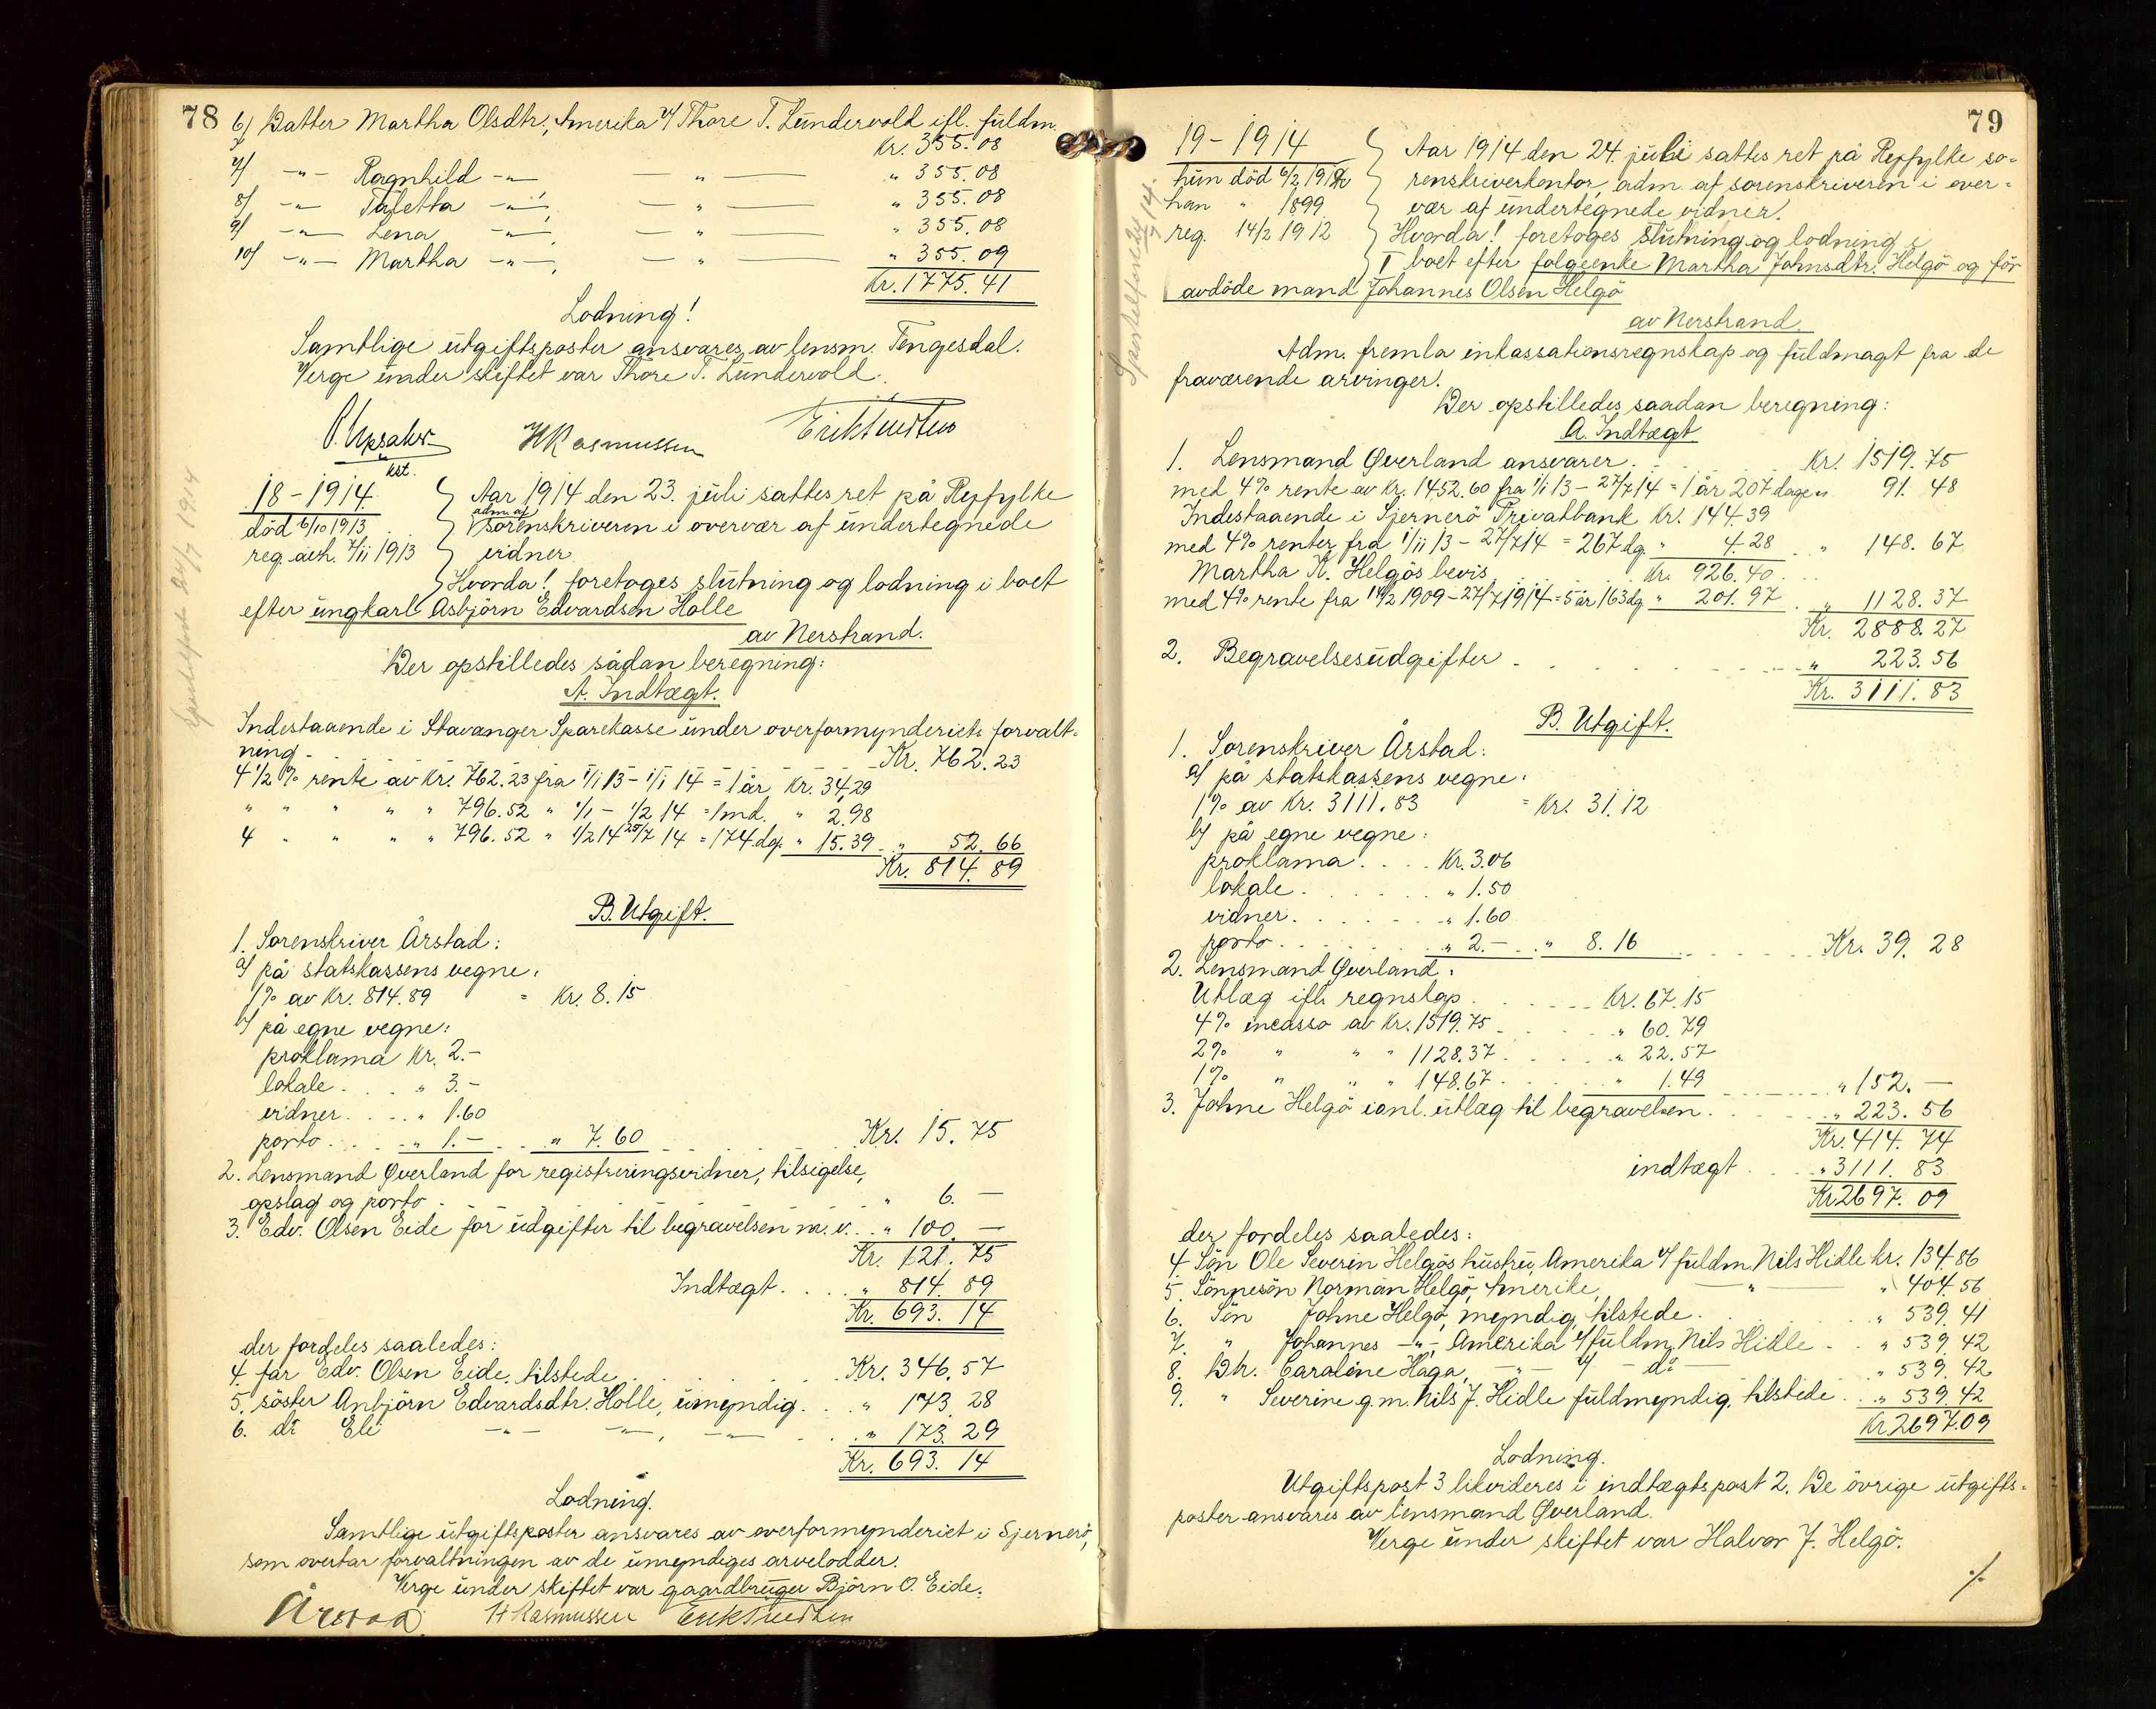 78
6/ Datter Martha Olsdtr, Amerika v/ Thore T. Lundervold ifl. fuldm.
Kr. 355.08
7/ -"- Ragnhild -"- — " — " 355.08
8/ -"- Taletta -"-, — " — " 355.08
9/ -"- Lena -"-, — " — " 355.08
10/ -"- Martha -"-, — " — " 355.09
Kr. 1775.41
Lodning!
Samtlige utgiftsposter ansvares av lensm. Tengesdal.
Verge under skiftet var Thore T. Lundervold.
kst. H Rasmussen
18-1914.
død 6/10 1913
reg. avh. 7/11 1913
Aar 1914 den 23. juli sattes ret på Ryfylke
adm. af
sorenskriveren i overvær af undertegnede
vidner.
Hvorda! foretoges slutning og lodning i boet
efter ungkarl Asbjörn Edvardsen Holle
av Nerstrand.
Der opstilledes sådan beregning:
A. Indtægt.
Indestaaende i Stavanger Sparekasse under overformynderiets forvalt-
ning - Kr. 762.23
4 1/2 % rente av Kr. 762.23 fra 1/1 13 - 1/1 14 = 1 år Kr. 34.29
" " " " " 796.52 " 1/1 - 1/2 14 = 1 md. " 2.98
4 " " " " 796.52 " 1/2 14 25/7 14 = 174 dg. " 15.39 " 52.66
Kr. 814.89
B. Utgift.
1. Sorenskriver Årstad:
a/ på statskassens vegne:
1% av Kr. 814.89 = Kr. 8.15
b/ på egne vegne:
proklama Kr. 2.-
lokale . . . " 3.-
vidner . . . " 1.60
porto . . . " 1.- . . " 7.60 Kr. 15.75
2. Lensmand Øverland for registreringsvidner, tilsigelse,
opslag og porto " 6.—
3. Edv. Olsen Eide for udgifter til begravelsen m. v. . " 100.—
Kr. 121.75
Indtægt . . . " 814.89
Kr. 693.14
der fordeles saaledes:
4. far Edv. Olsen Eide, tilstede . . . Kr. 346.57
5. söster Anbjörn Edvardsdtr. Holle, umyndig . . " 173.28
6. do Eli -"- -"-, -"- . . " 173.29
Kr. 693.14
Lodning.
Samtlige utgiftsposter ansvares av overformynderiet i Sjernerö,
som overtar forvaltningen av de umyndiges arvelodder.
Verge under skiftet var gaardbruger Björn O. Eide.
Årstad. H Rasmussen
79
19-1914
hun død 6/2 1912
han " 1899
reg. 14/2 1912
Aar 1914 den 24. juli sattes ret på Ryfylke so-
renskriverkontor, adm. af sorenskriveren i over-
vær af undertegnede vidner.
Hvorda! foretoges slutning og lodning i
boet efter følgeenke Martha Johnsdtr. Helgö og før
avdöde mand Johannes Olsen Helgö
av Nerstrand.
Adm. fremla inkassationsregnskap og fuldmagt fra de
fraværende arvinger.
Der opstilledes saadan beregning:
A. Indtægt
1. Lensmand Øverland ansvarer . . . Kr. 1519.75
med 4% rente av Kr. 1452.60 fra 1/1 13 - 27/7 14 = 1 år 207 dage " 91.48
Indestaaende i Sjernerö Privatbank Kr. 144.39
med 4% renter fra 1/11 13 - 27/7 14 = 267 dg. " 4.28 . . " 148.67
Martha K. Helgös bevis Kr. 926.40 . . .
med 4% rente fra 14/2 1909 - 27/7 1914 = 5 år 163 dg " 201.97 . " 1128.37
Kr. 2888.27
2. Begravelsesudgifter . . . " 223.56
Kr. 3111.83
B. Utgift.
1. Sorenskriver Årstad:
a/ på statskassens vegne:
1% av Kr. 3111.83 = Kr. 31.12
b/ på egne vegne:
proklama . . . Kr. 3.06
lokale . . . " 1.50
vidner . . . " 1.60
porto . . . " 2.- . . " 8.16 . . . Kr. 39.28
2. Lensmand Øverland:
Utlæg ifl. regnskap . . . Kr. 67.15
4% incasso av Kr. 1519.75 . . " 60.79
2% " " " 1128.37 . . . " 22.57
1% " " " 148.67 . . . " 1.49 . . . " 152.—
3. Johne Helgö ianl. utlæg til begravelsen . . . " 223.56
Kr. 414.74
indtægt . . . " 3111.83
Kr 2697.09
der fordeles saaledes:
4. Sön Ole Severin Helgös hustru, Amerika v/ fuldm. Nils Hidle Kr. 134.86
5. Sönnesön Norman Helgö, Amerike, — " — " 404.56
6. Sön Johne Helgö, myndig, tilstede . . . " 539.41
7. " Johannes -"-, Amerika v/ fuldm. Nils Hidle . . " 539.42
8. Dtr. Caroline Haga, -"- v/ - do - " 539.42
9. " Severine g.m. Nils J. Hidle fuldmyndig, tilstede . . " 539.42
Kr. 2697.09
Lodning.
Utgiftspost 3 likvideres i indtægtspost 2. De övrige utgifts-
poster ansvares av lensmand Øverland.
Verge under skiftet var Halvor J. Helgö.